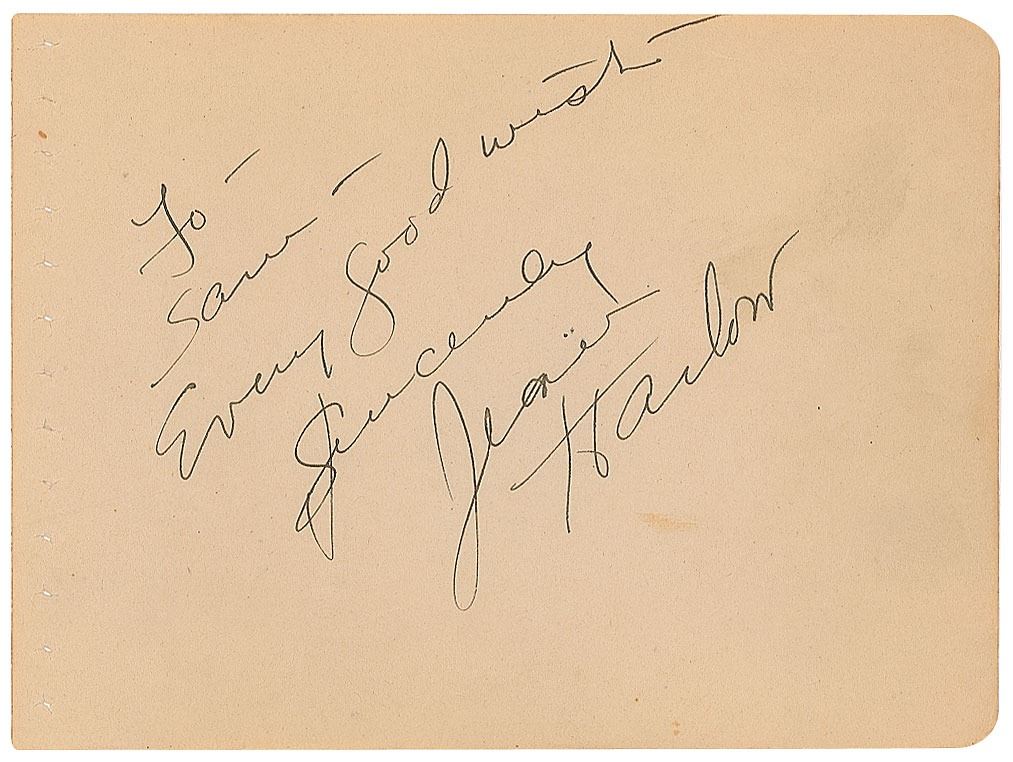 To -
Sam -
Every Good wish -
Sincerely
Jean
Harlow